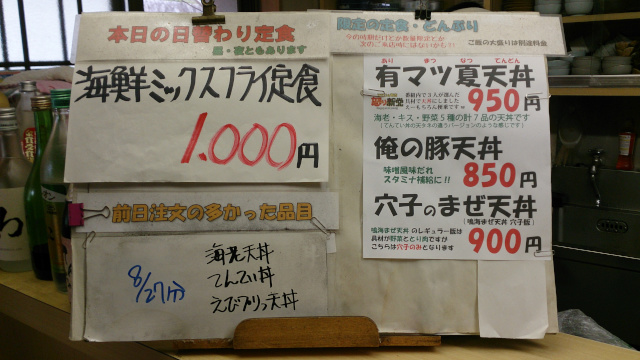 本日の日替わり定食
昼・夜ともあります
海鮮ミックスフライ定食
1.000円
前日注文の多かった品目
8/27分
海老天丼
てんてい丼
えびプリッ天丼
限定の定食・どんぶり
ご飯の大盛りは別途料金
あり まつ なつ てんどん
有マツ夏天丼
950円
海老・キス・野菜5種の計7品の天丼です
(てんてい丼の天タネの違うバージョンのような感じです)
俺の豚天丼
味噌風味だれ
スタミナ補給に!!
850円
穴子のまぜ天丼
(鳴海まぜ天丼 穴子版)
鳴海まぜ天丼 のレギュラー版は
具材が野菜ととり肉ですが
こちらは穴子のみとなります
900円